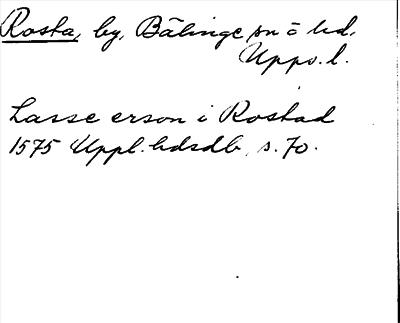 Rosta, by, Bälinge sn o hd.
Upps. l.
Lasse erson i Rostad
1575 Uppl. hdsdb, s. 70.